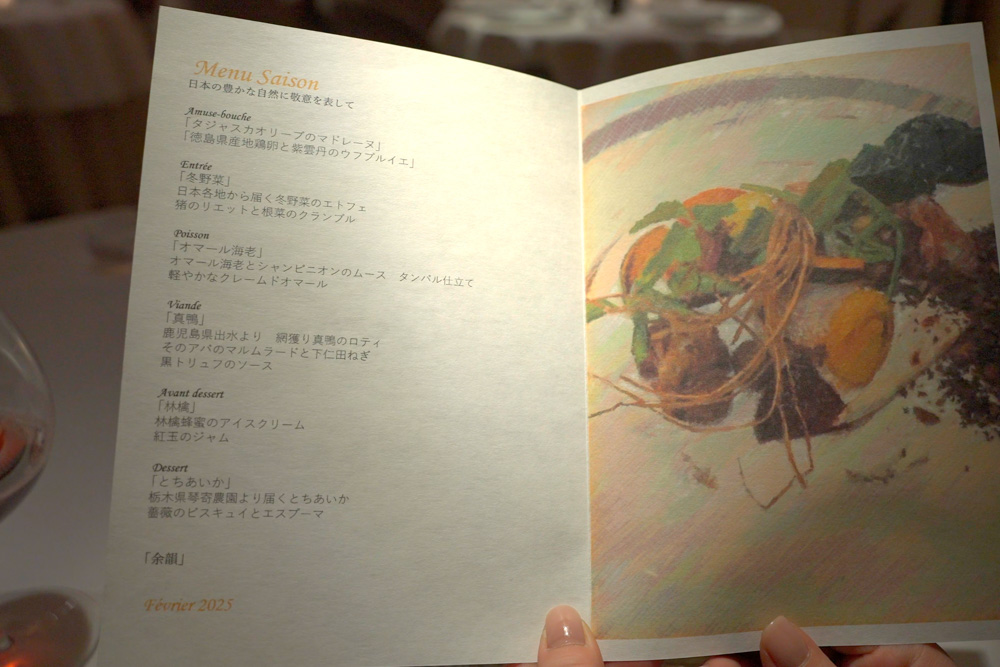 Menu Saison
日本の豊かな自然に敬意を表して
Amuse-bouche
「タジャスカオリーブのマドレーヌ」
「徳島県産地鶏卵と紫雲丹のウフブルイエ」
Entrée
「冬野菜」
日本各地から届く冬野菜のエトフェ
猪のリエットと根菜のクランブル
Poisson
「オマール海老」
オマール海老とシャンピニオンのムース　タンバル仕立て
軽やかなクレームドオマール
Viande
「真鴨」
鹿児島県出水より　網獲り真鴨のロティ
そのアバのマルムラードと下仁田ねぎ
黒トリュフのソース
Avant dessert
「林檎」
林檎蜂蜜のアイスクリーム
紅玉のジャム
Dessert
「とちあいか」
栃木県琴寄農園より届くとちあいか
薔薇のビスキュイとエスプーマ
「余韻」
Février 2025